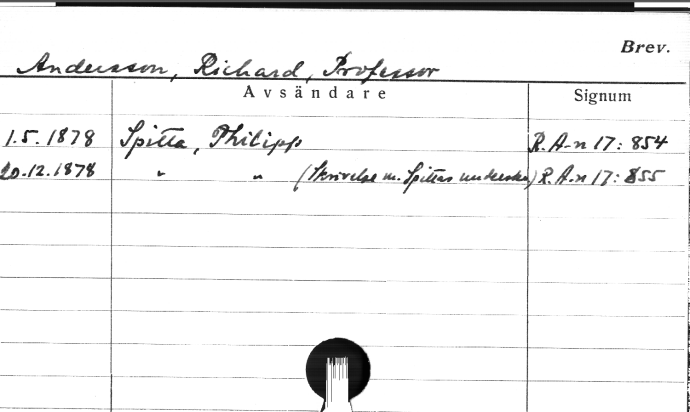 Brev.
Andersson, Richard, Professor
Avsändare Signum
1.5.1878 Spitta, Philipp R.A-n 17: 854
20.12.1878 " " (Skrivelse m. Spittas underskr.) R.A-n 17: 855